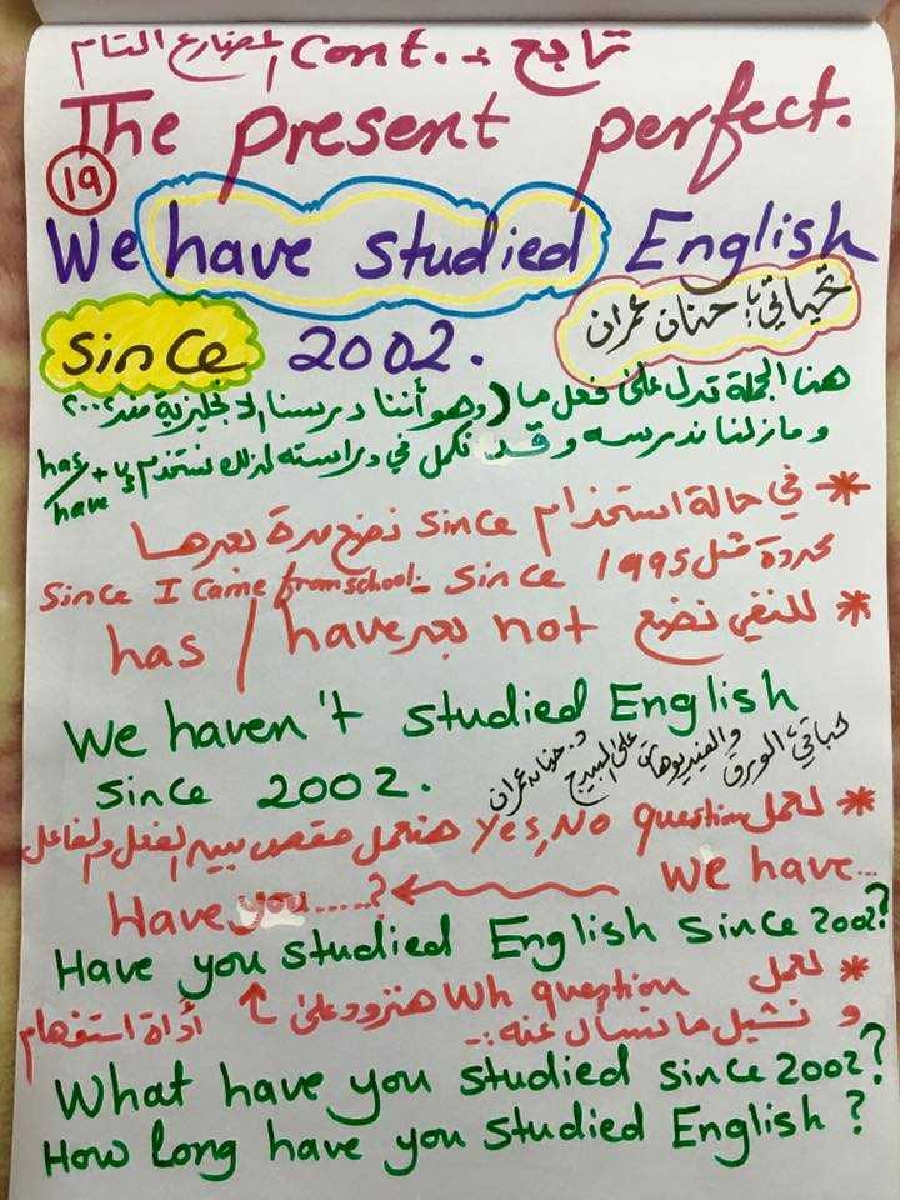 تابع .Cont المضارع التام
The present perfect.
19
We have studied English
since 2002.
تحياتي؛ حنان عمران
هنا الجملة تدل على فعل ما (وهو أننا درسنا الإنجليزية منذ ٢٠٠٢
و مازلنا ندرسه و قد نكمل في دراسته لذلك نستخدم has/have +
* في حالة استخدام since نضع مدة بعدها
محددة مثل since 1995 - since I came from school
* للنفي نضع not بعد has / have
We haven't studied English
since 2002.
تحياتي؛ الورق والفيديوهات على
د. حنان عمران
* لعمل Yes, No question هنعمل مقص بين الفعل والفاعل
We have...
Have you.....?
Have you studied English since 2002?
* لعمل Wh question هنزود على ↑ أداة استفهام
و نشيل ما نسأل عنه :-
What have you studied since 2002?
How long have you studied English ?